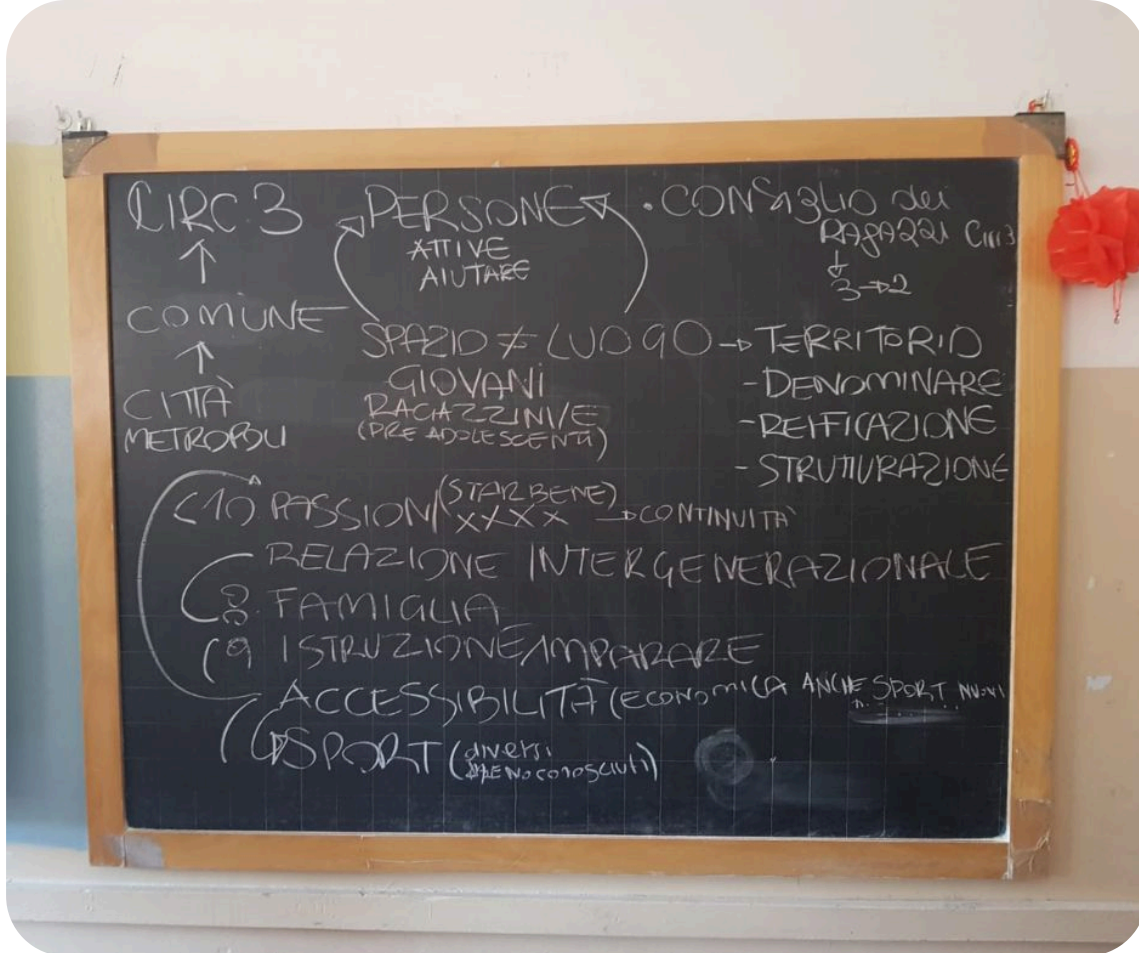 CIRC.3
↑
COMUNE
↑
CITTÀ
METROPOLI
PERSONE
ATTIVE
AIUTARE
• CONSIGLIO dei
RAGAZZI Circ 3
↓
3→2
SPAZIO ≠ LUOGO → TERRITORIO
GIOVANI
RAGAZZINI/E
(PRE ADOLESCENTI)
- DENOMINARE
- REIFICAZIONE
- STRUTTURAZIONE
<10 PASSIONI (STAR BENE)
XXXX → CONTINUITÀ
RELAZIONE INTERGENERAZIONALE
8. FAMIGLIA
9 ISTRUZIONE/IMPARARE
ACCESSIBILITÀ (ECONOMICA ANCHE SPORT NUOVI
SPORT (diversi
MENO CONOSCIUTI)